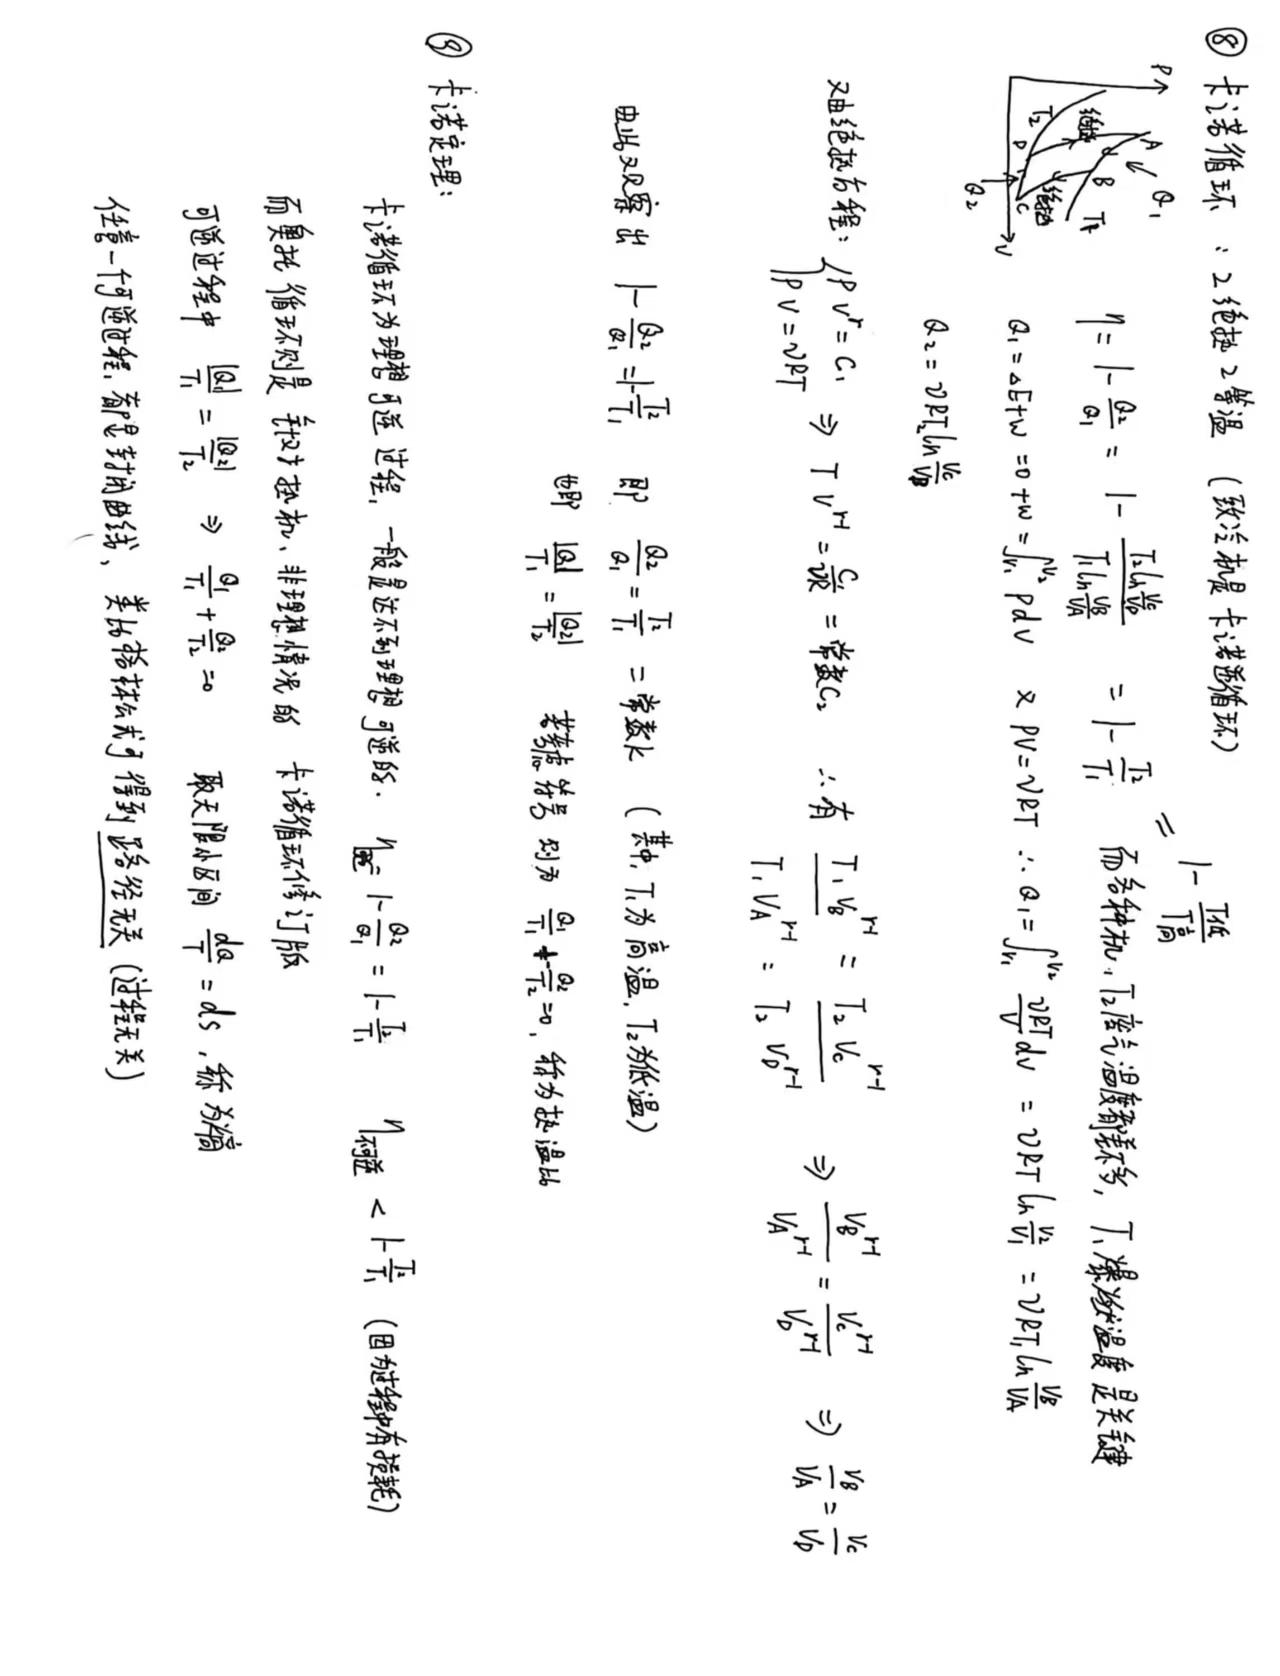 ⑧ 卡诺循环：2绝热2等温（致冷机是卡诺逆循环）
η = 1 - Q₂/Q₁ = 1 - (T₂ ln V_C/V_D)/(T₁ ln V_B/V_A) = 1 - T₂/T₁ = 1 - T低/T高
而各种机，T₂废气温度都差不多，T₁爆燃温度是关键
P A Q₁ B T₁ 绝热 T₂ D 绝热 C Q₂ V
Q₁ = ΔE+W = 0+W = ∫_{V₁}^{V₂} PdV 又 PV=νRT ∴ Q₁ = ∫_{V₁}^{V₂} νRT/V dV = νRT ln V₂/V₁ = νRT₁ ln V_B/V_A
Q₂ = νRT₂ ln V_C/V_D
又由绝热方程：{ PV^γ = C₁ PV = νRT ⇒ TV^{γ-1} = C₁/νR = 常数C₂ ∴有 T₁V_B^{γ-1} = T₂V_C^{γ-1}
T₁V_A^{γ-1} = T₂V_D^{γ-1} ⇒ V_B^{γ-1}/V_A^{γ-1} = V_C^{γ-1}/V_D^{γ-1} ⇒ V_B/V_A = V_C/V_D
由此又观察出 1 - Q₂/Q₁ = 1 - T₂/T₁ 即 Q₂/Q₁ = T₂/T₁ = 常数k （其中，T₁为高温，T₂为低温）
也即 |Q₁|/T₁ = |Q₂|/T₂ 若考虑符号 则为 Q₁/T₁ + Q₂/T₂ = 0，称为热温比
⑨ 卡诺定理：
卡诺循环为理想可逆过程，一般是达不到理想可逆的. η可逆 = 1 - Q₂/Q₁ = 1 - T₂/T₁ η不可逆 < 1 - T₂/T₁ （因为过程中有损耗）
而奥托循环则是针对热机、非理想情况的 卡诺循环修订版
可逆过程中 |Q₁|/T₁ = |Q₂|/T₂ ⇒ Q₁/T₁ + Q₂/T₂ = 0 取无限小区间 dQ/T = ds，称为熵
任意一个可逆过程，都是封闭曲线、类比格林公式可得到 路径无关（过程无关）